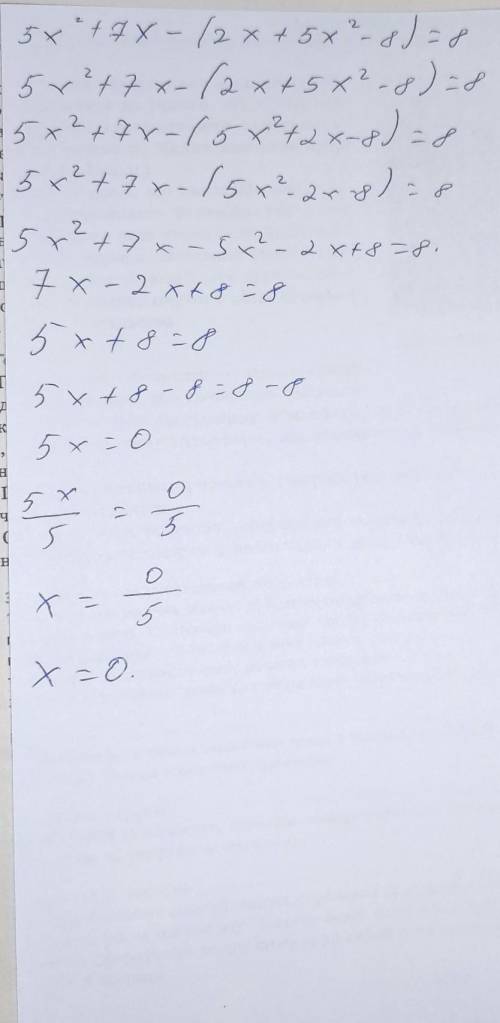 5x²+7x-(2x+5x²-8)=8
5x²+7x-(2x+5x²-8)=8
5x²+7x-(5x²+2x-8)=8
5x²+7x-(5x²-2x-8)=8
5x²+7x-5x²-2x+8=8.
7x-2x+8=8
5x+8=8
5x+8-8=8-8
5x=0
5x/5=0/5
x=0/5
x=0.